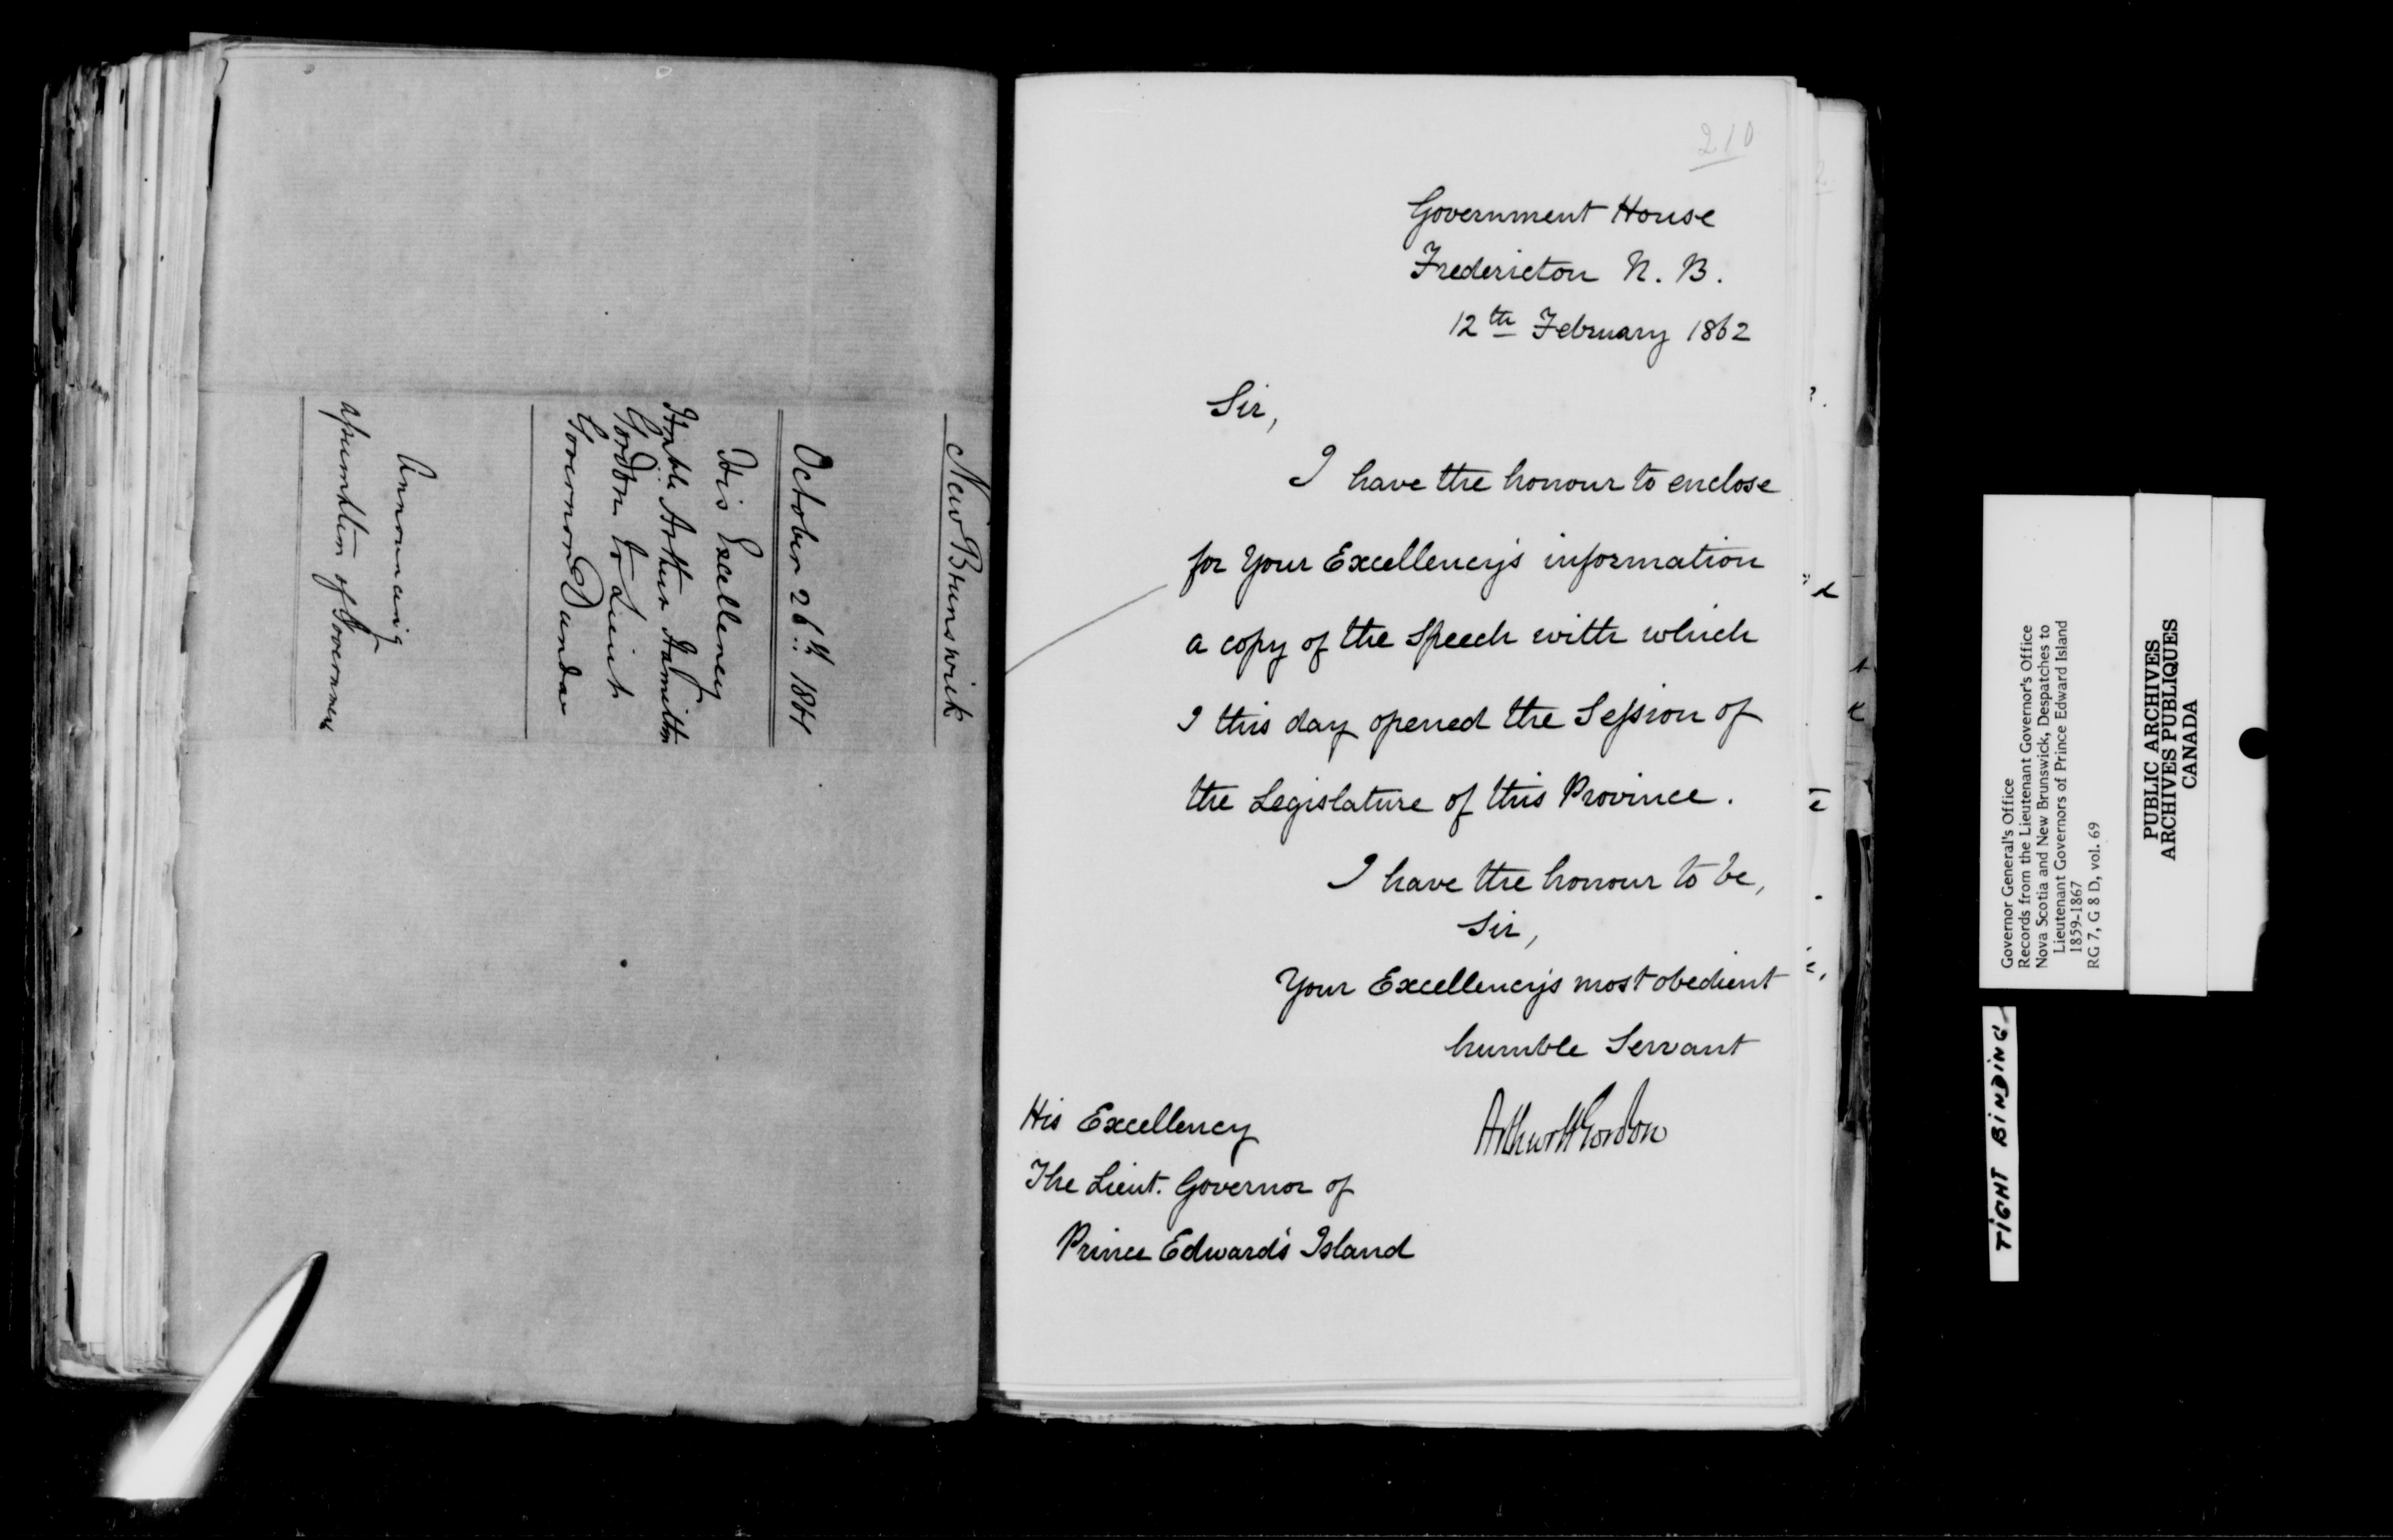 New Brunswick
October 26th 1861
His Excellency
Honble Arthur Hamilton
Gordon to Lieut
Governor Dundas
Announcing
assumption of Government
210
Government House
Fredericton N. B.
12th February 1862
Sir,
I have the honour to enclose
for Your Excellency's information
a copy of the Speech with which
I this day opened the Session of
the Legislature of this Province.
I have the honour to be,
Sir,
Your Excellency's most obedient
humble Servant
Arthur H Gordon
His Excellency
The Lieut. Governor of
Prince Edward's Island
Governor General's Office
Records from the Lieutenant Governor's Office
Nova Scotia and New Brunswick, Despatches to
Lieutenant Governors of Prince Edward Island
1859-1867
RG 7, G 8 D, vol. 69
PUBLIC ARCHIVES
ARCHIVES PUBLIQUES
CANADA
TIGHT BINDING